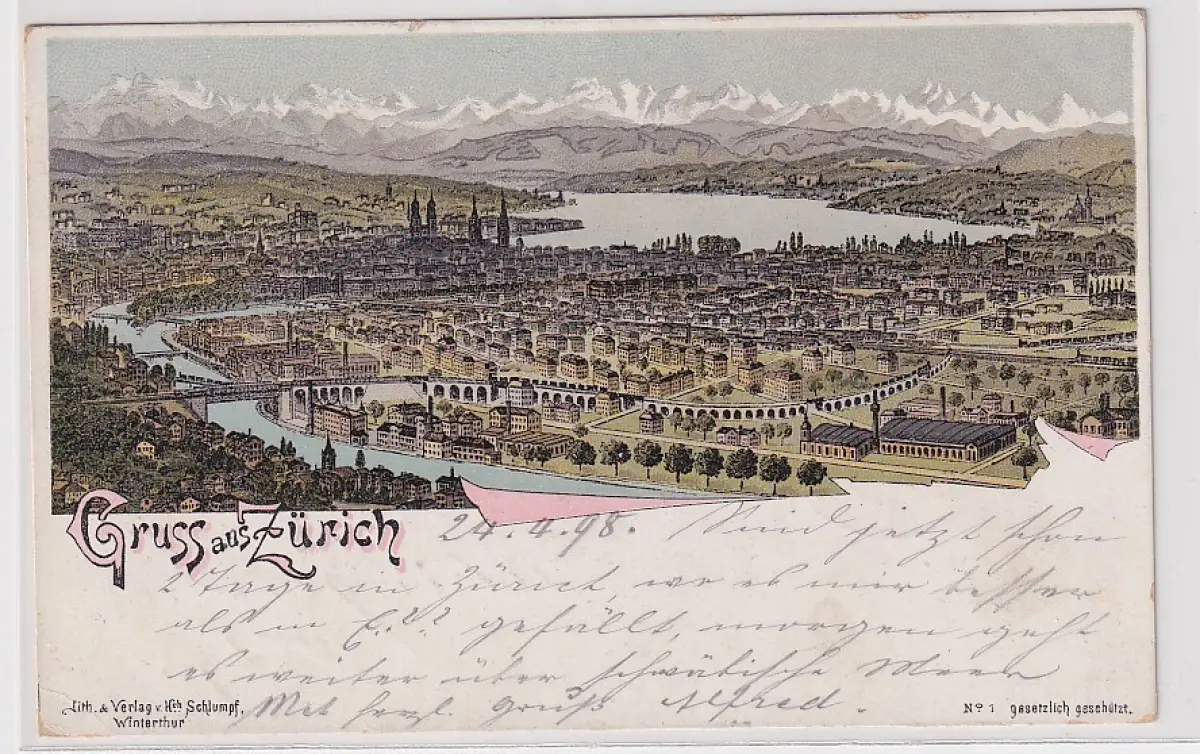 Gruss aus Zürich
24.4.98. Sind jetzt schon
2 Tage in Zürich, wo es mir besser
als in gefällt, morgen geht
es weiter über schwäbische Meer
Mit herzl. Gruß Alfred.
Lith. & Verlag v. Hch Schlumpf,
Winterthur
No 1 gesetzlich geschützt.